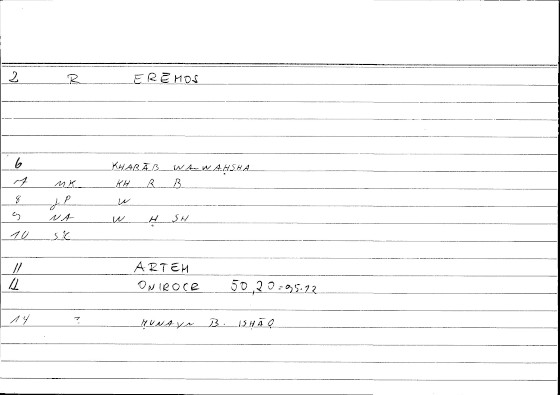 2 R ERĒMOS
6 KHARĀB WA-WAḤSHA
7 MK KH R B
8 JP W
9 NA W Ḥ SH
10 SC
11 ARTEM
12 ONIROCR 50,20=95.12
14 ? ḤUNAYN B. ISḤĀQ